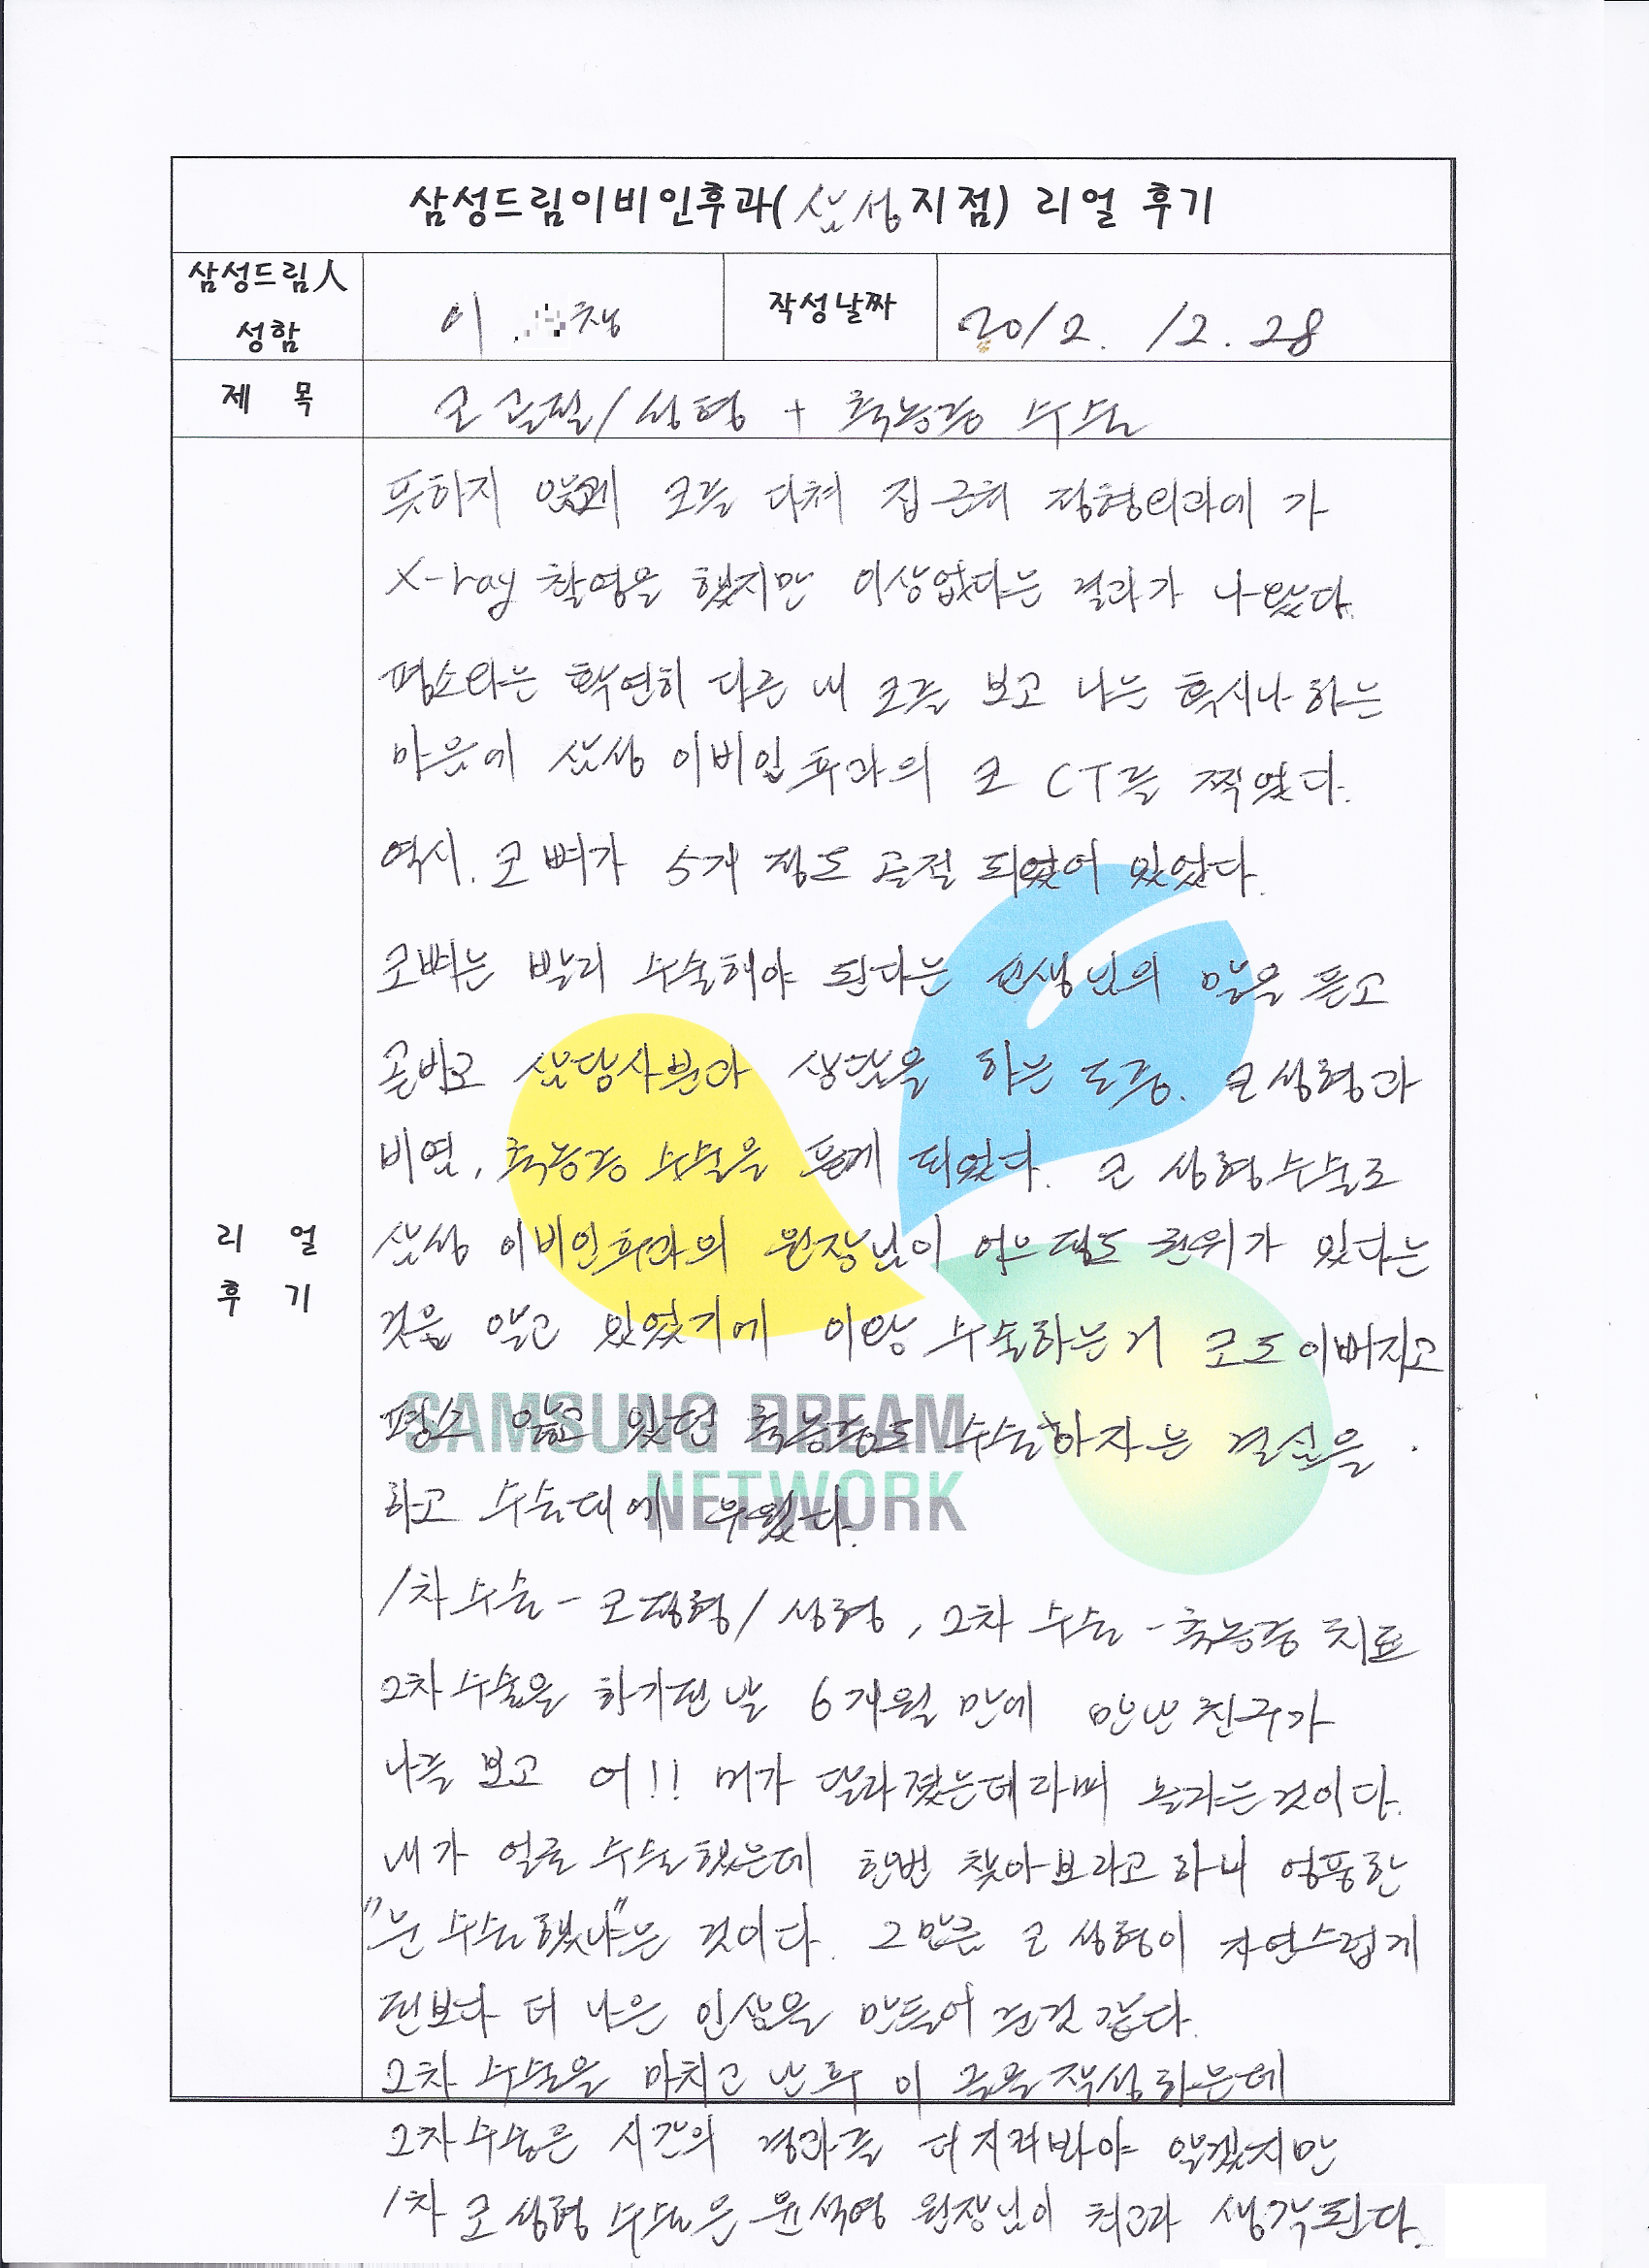 삼성드림이비인후과(삼성지점) 리얼 후기
삼성드림人 성함
이 채
작성날짜
2012. 12. 28
제 목
코골절/성형 + 축농증 수술
리 얼 후 기
뜻하지 않게 코를 다쳐 집 근처 정형외과에 가
X-ray 촬영을 했지만 이상없다는 결과가 나왔다.
평소와는 확연히 다른 내 코를 보고 나는 혹시나 하는
마음에 삼성 이비인후과의 코 CT를 찍었다.
역시. 코뼈가 5개 정도 골절 되었어 있었다.
코뼈는 빨리 수술해야 된다는 선생님의 말을 듣고
곧바로 상담사분과 상담을 하는 도중. 코성형과
비염, 축농증 수술을 듣게 되었다. 코 성형수술로
삼성 이비인후과의 원장님이 어느정도 권위가 있다는
것을 알고 있었기에 이왕 수술하는거 코도 이뻐지고
평소 앓고 있던 축농증도 수술하자는 결심을
하고 수술대에 누웠다.
SAMSUNG DREAM
NETWORK
1차 수술 - 코정형/성형, 2차 수술 - 축농증 치료
2차 수술을 하기전 날 6개월 만에 만난 친구가
나를 보고 어!! 머가 달라졌는데라며 놀라는것이다.
내가 얼굴 수술했는데 한번 찾아보라고 하니 엉뚱한
"눈 수술했냐"는 것이다. 그만큼 코 성형이 자연스럽게
전보다 더 나은 인상을 만들어 준것 같다.
2차 수술을 마치고 난 후 이 글을 작성하는데
2차 수술은 시간의 경과를 더 지켜봐야 알겠지만
1차 코 성형 수술은 윤석영 원장님이 최고라 생각된다.